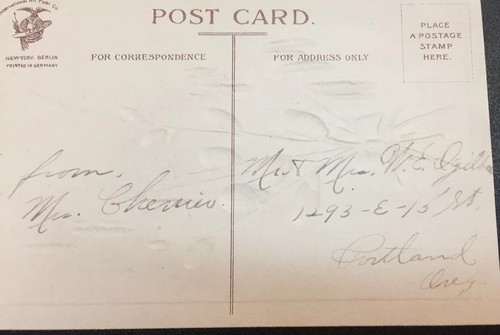 International Art Publ. Co.
NEW YORK BERLIN
PRINTED IN GERMANY
POST CARD.
PLACE
A POSTAGE
STAMP
HERE.
FOR CORRESPONDENCE
FOR ADDRESS ONLY
from,
Mrs. Chenier.
Mr & Mrs. W. E.
1293-E-15 St.
Portland
Oreg.